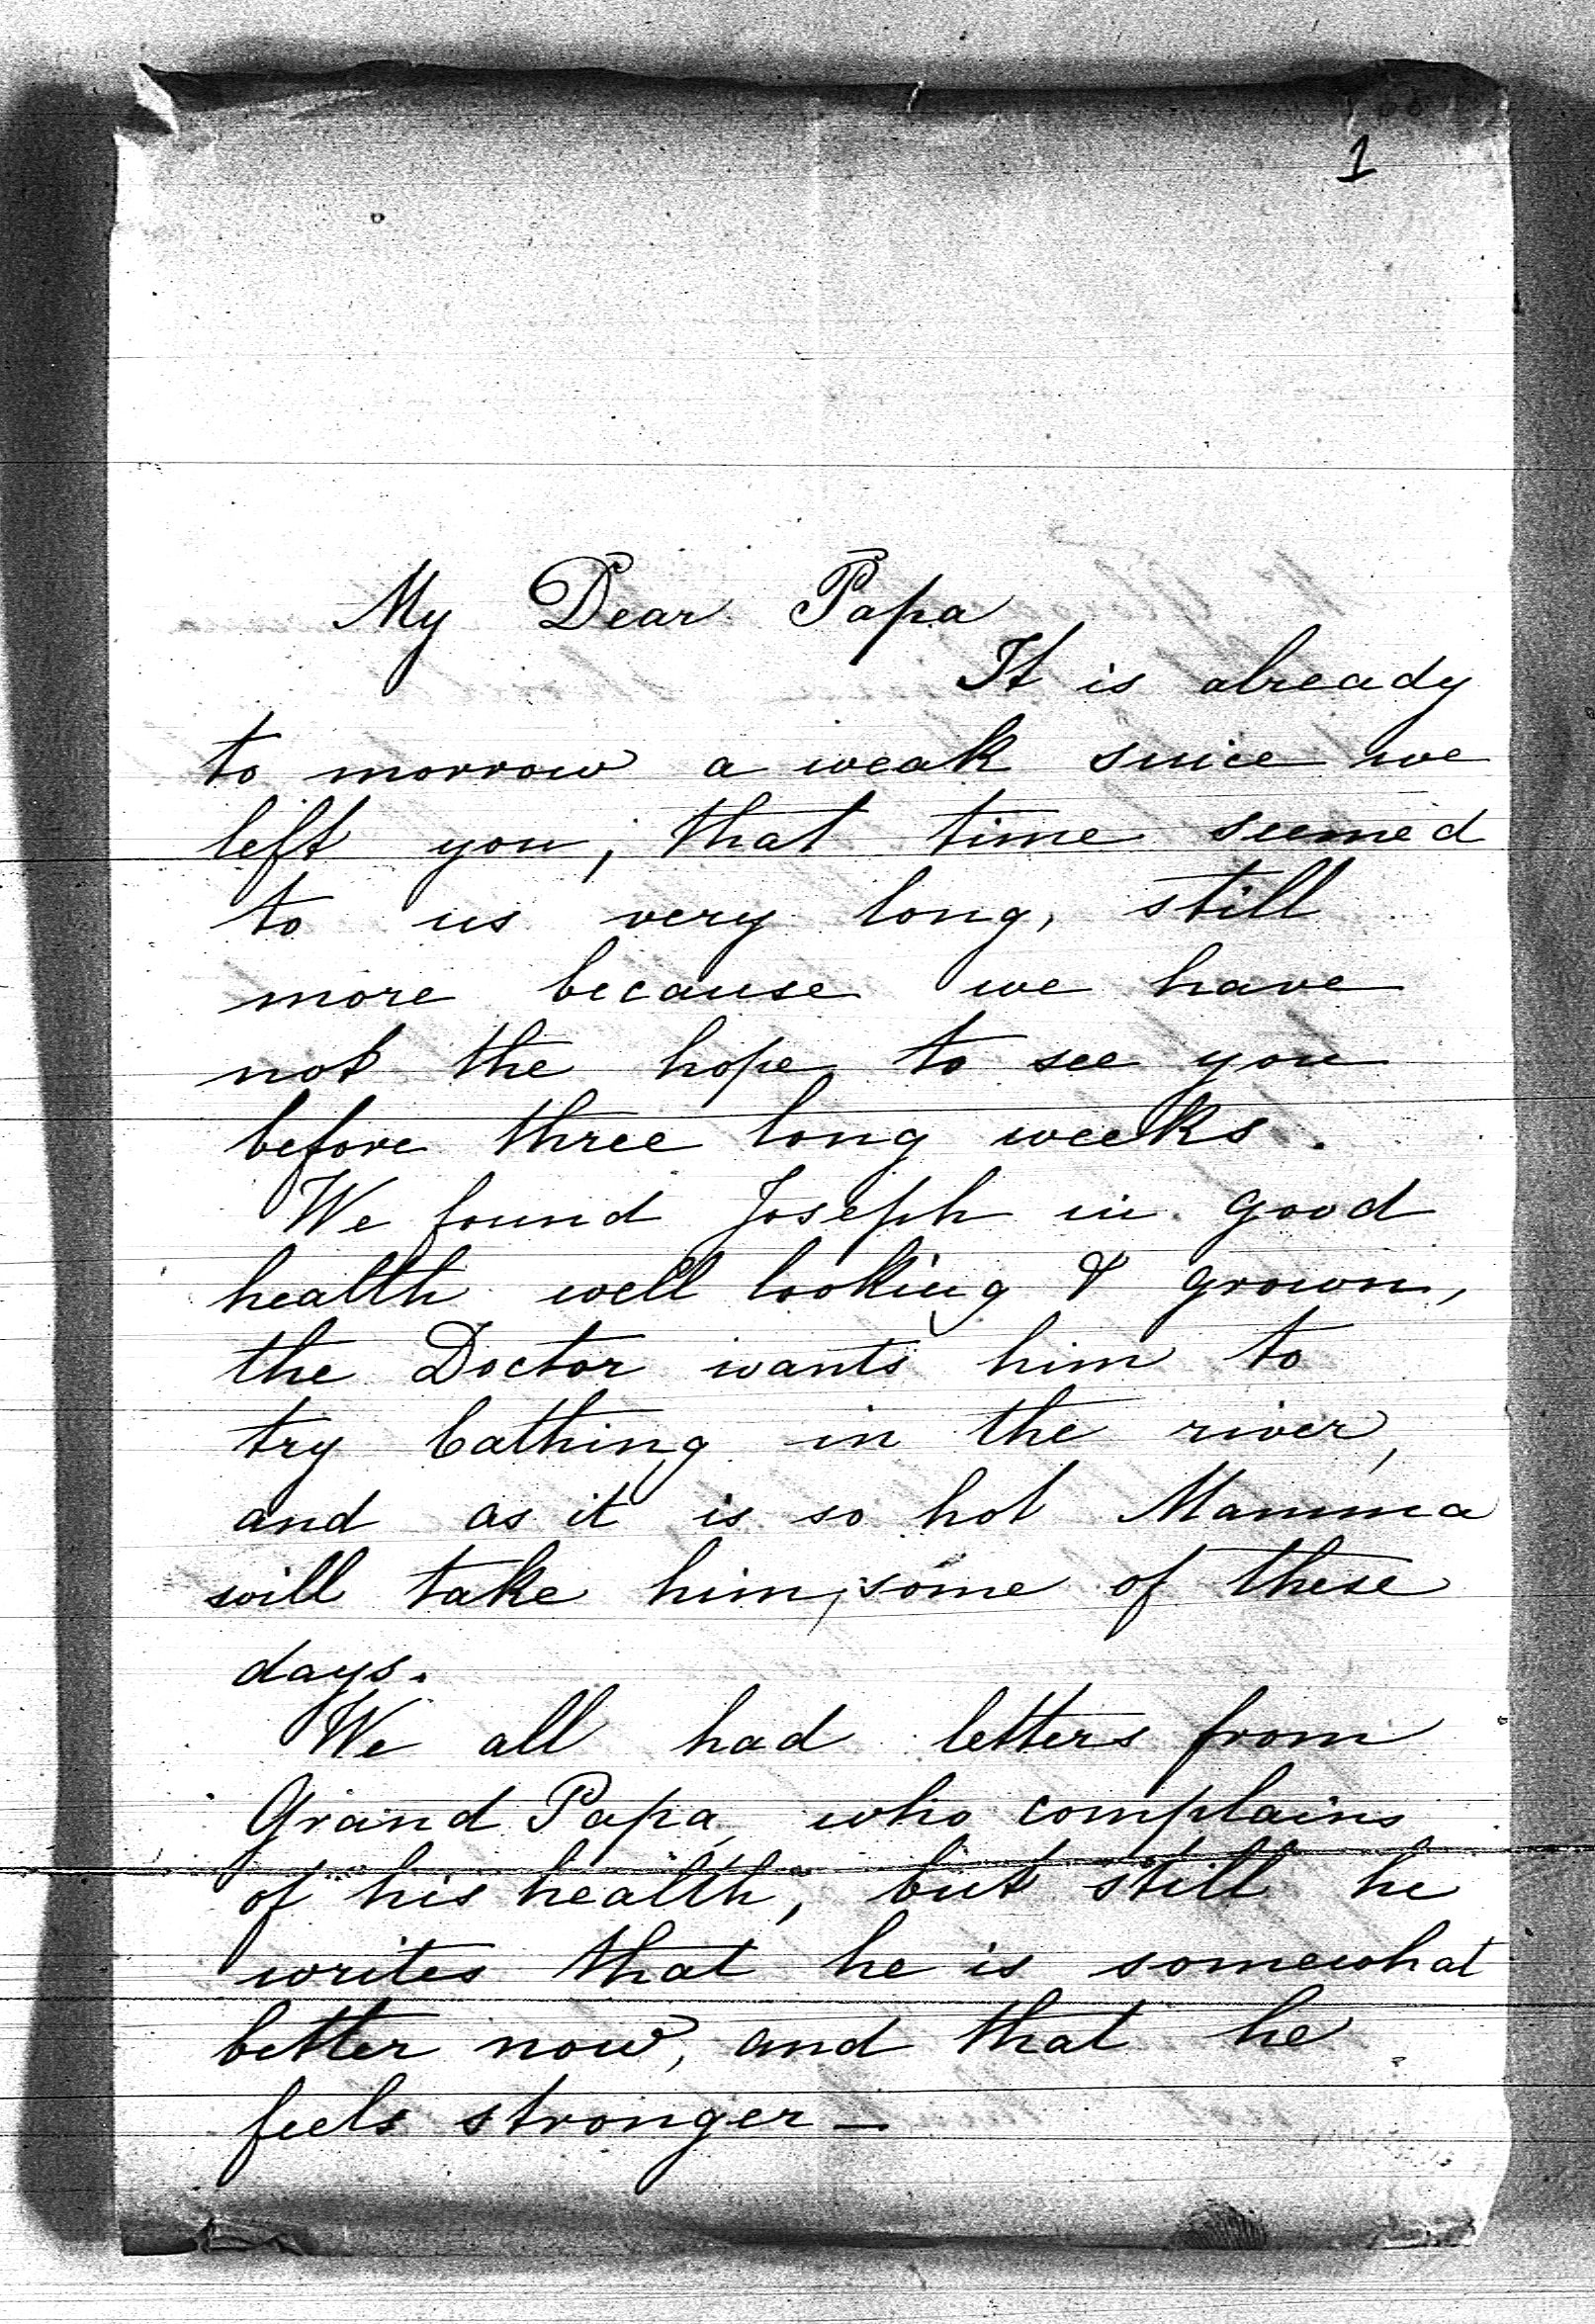 1
My Dear Papa
It is already
to morrow a weak since we
left you; that time seemed
to us very long, still
more because we have
not the hope to see you
before three long weeks.
We found Joseph in good
health well looking & grown,
the Doctor wants him to
try bathing in the river,
and as it is so hot Mamma
will take him, some of these
days.
We all had letters from
Grand Papa, who complains
of his health, but still he
writes that he is somewhat
better now, and that he
feels stronger —